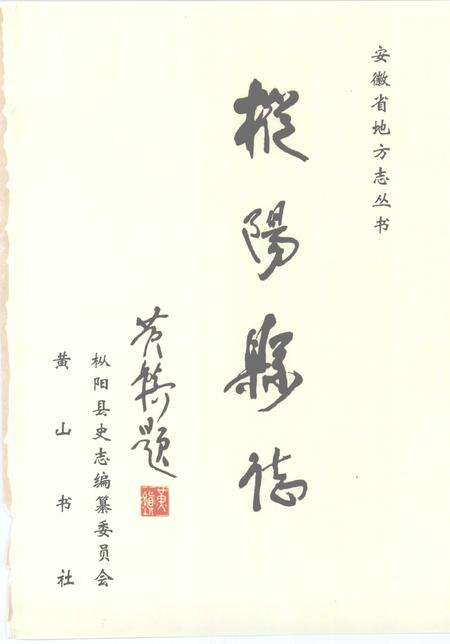 安徽省地方志丛书
樅陽縣誌
黄鎮题
枞阳县史志编纂委员会
黄山书社
黄鎮